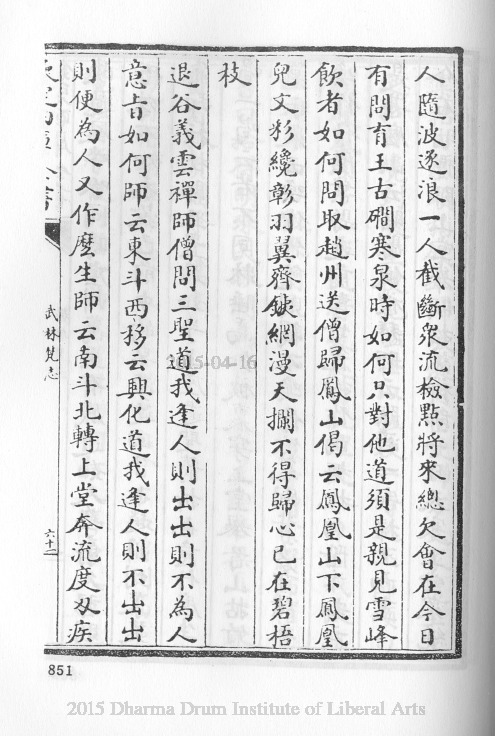 人隨波逐浪一人截斷衆流檢點將來總欠會在今日
有問育王古磵寒泉時如何只對他道須是親見雪峰
飲者如何問取趙州送僧歸鳳山偈云鳳凰山下鳳凰
兒文彩纔彰羽翼齊鐵網漫天攔不得歸心已在碧梧
枝
退谷義雲禪師僧問三聖道我逢人則出出則不為人
意旨如何師云東斗西移云興化道我逢人則不出出
則便為人又作麽生師云南斗北轉上堂奔流度刄疾
武林梵志
六十二
851
2015-04-16
2015 Dharma Drum Institute of Liberal Arts